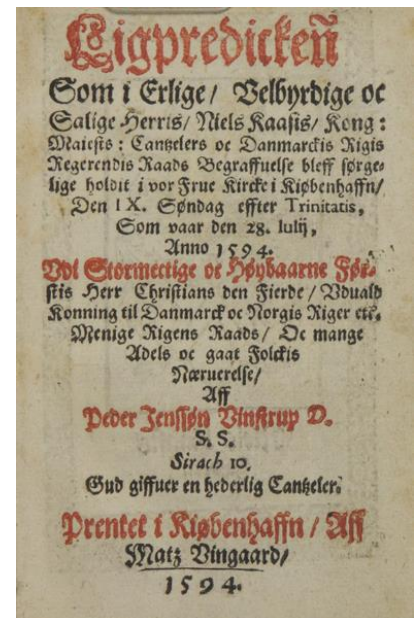 Ligpredicken
Som i Erlige/ Velbyrdige oc
Salige Herris/ Niels Kaasis/ Kong:
Maiests: Cantzelers oc Danmarckis Rigis
Regerendis Raads Begraffuelse bleff sørge-
lige holdit i vor Frue Kircke i Kiøbenhaffn/
Den IX. Søndag effter Trinitatis,
Som vaar den 28. Iulij,
Anno 1594.
Vdi Stormectige oc Høybaarne Før-
stis Herr Christians den Fierde/ Vduald
Konning til Danmarck oc Norgis Riger etc.
Menige Rigens Raads/ Oc mange
Adels oc gaat Folckis
Næruerelse/
Aff
Peder Jenssøn Vinstrup D.
S. S.
Sirach 10.
Gud giffuer en hederlig Cantzeler.
Prentet i Kiøbenhaffn/ Aff
Matz Vingaard/
1594.